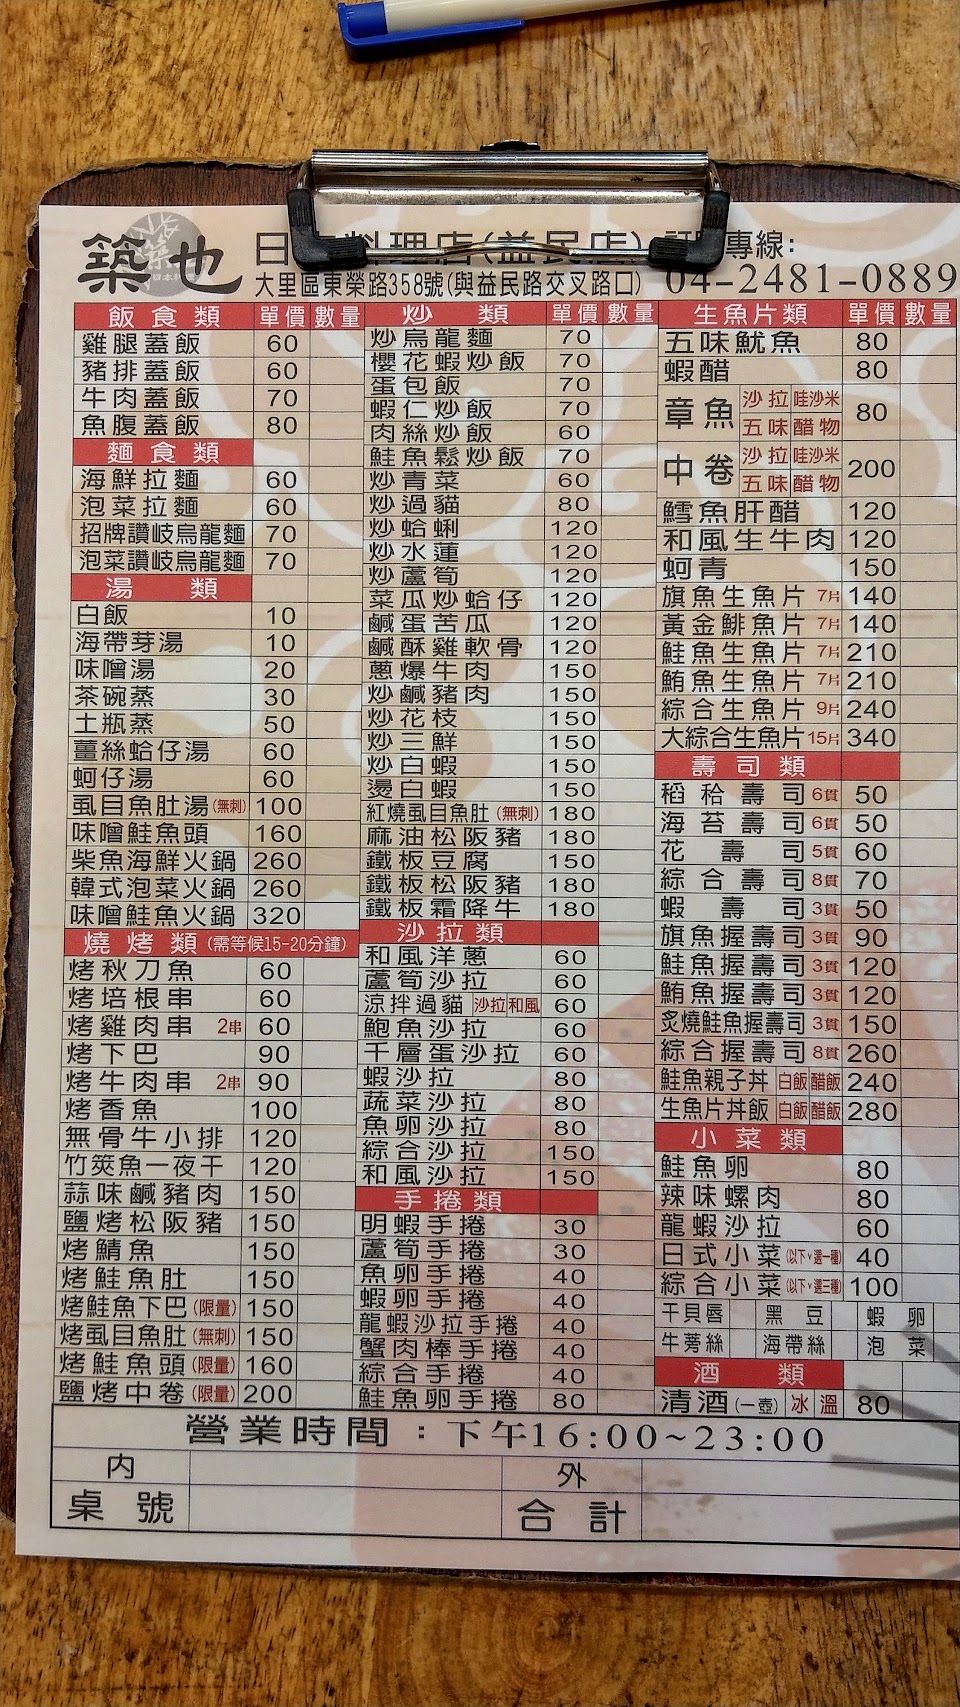 築也
日 料理店(益民店) 訂 專線:
大里區東榮路358號(與益民路交叉路口) 04-2481-0889
飯食類 單價 數量
雞腿蓋飯 60
豬排蓋飯 60
牛肉蓋飯 70
魚腹蓋飯 80
麵食類
海鮮拉麵 60
泡菜拉麵 60
招牌讚岐烏龍麵 70
泡菜讚岐烏龍麵 70
湯類
白飯 10
海帶芽湯 10
味噌湯 20
茶碗蒸 30
土瓶蒸 50
薑絲蛤仔湯 60
蚵仔湯 60
虱目魚肚湯(無刺) 100
味噌鮭魚頭 160
柴魚海鮮火鍋 260
韓式泡菜火鍋 260
味噌鮭魚火鍋 320
燒烤類(需等候15-20分鐘)
烤秋刀魚 60
烤培根串 60
烤雞肉串 2串 60
烤下巴 90
烤牛肉串 2串 90
烤香魚 100
無骨牛小排 120
竹筴魚一夜干 120
蒜味鹹豬肉 150
鹽烤松阪豬 150
烤鯖魚 150
烤鮭魚肚 150
烤鮭魚下巴(限量) 150
烤虱目魚肚(無刺) 150
烤鮭魚頭(限量) 160
鹽烤中卷(限量) 200
炒類 單價 數量
炒烏龍麵 70
櫻花蝦炒飯 70
蛋包飯 70
蝦仁炒飯 70
肉絲炒飯 60
鮭魚鬆炒飯 70
炒青菜 60
炒過貓 80
炒蛤蜊 120
炒水蓮 120
炒蘆筍 120
菜瓜炒蛤仔 120
鹹蛋苦瓜 120
鹹酥雞軟骨 120
蔥爆牛肉 150
炒鹹豬肉 150
炒花枝 150
炒三鮮 150
炒白蝦 150
燙白蝦 150
紅燒虱目魚肚(無刺) 180
麻油松阪豬 180
鐵板豆腐 150
鐵板松阪豬 180
鐵板霜降牛 180
沙拉類
和風洋蔥 60
蘆筍沙拉 60
涼拌過貓 沙拉 和風 60
鮑魚沙拉 60
千層蛋沙拉 60
蝦沙拉 80
蔬菜沙拉 80
魚卵沙拉 80
綜合沙拉 150
和風沙拉 150
手捲類
明蝦手捲 30
蘆筍手捲 30
魚卵手捲 40
蝦卵手捲 40
龍蝦沙拉手捲 40
蟹肉棒手捲 40
綜合手捲 40
鮭魚卵手捲 80
生魚片類 單價 數量
五味魷魚 80
蝦醋 80
章魚 沙拉 哇沙米 五味 醋物 80
中卷 沙拉 哇沙米 五味 醋物 200
鱈魚肝醋 120
和風生牛肉 120
蚵青 150
旗魚生魚片 7片 140
黃金鯡魚片 7片 140
鮭魚生魚片 7片 210
鮪魚生魚片 7片 210
綜合生魚片 9片 240
大綜合生魚片 15片 340
壽司類
稻秴壽司 6貫 50
海苔壽司 6貫 50
花壽司 5貫 60
綜合壽司 8貫 70
蝦壽司 3貫 50
旗魚握壽司 3貫 90
鮭魚握壽司 3貫 120
鮪魚握壽司 3貫 120
炙燒鮭魚握壽司 3貫 150
綜合握壽司 8貫 260
鮭魚親子丼 白飯 醋飯 240
生魚片丼飯 白飯 醋飯 280
小菜類
鮭魚卵 80
辣味螺肉 80
龍蝦沙拉 60
日式小菜(以下v選一種) 40
綜合小菜(以下v選三種) 100
干貝唇 黑豆 蝦卵
牛蒡絲 海帶絲 泡菜
酒類
清酒(一壺) 冰 溫 80
營業時間:下午16:00~23:00
內 外
桌號 合計